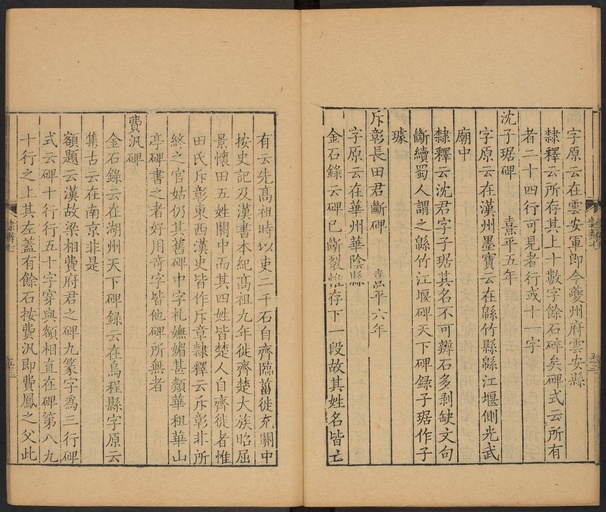 字原云在雲安軍即今夔州府雲安縣
隸釋云所存其上十數字餘石碎矣碑式云所有
者二十四行可見者行或十一字
沈子琚碑　熹平五年
字原云在漢州墨寶云在緜竹縣緜江堰側光武
廟中
隸釋云沈君字子琚其名不可辨石多剥缺文句
斷續蜀人謂之緜竹江堰碑天下碑錄子琚作子
璩
斥彰長田君斷碑　熹平六年
字原云在華州華陰縣
金石錄云碑已斷裂惟存下一段故其姓名皆亡
有云先高祖時以吏二千石自齊臨菑徙充關中
按史記及漢書本紀高祖九年徙齊楚大族昭屈
景懷田五姓關中而其四姓皆楚人自齊徙者惟
田氏斥彰東西漢史皆作斥章隸釋云斥彰非所
終之官姑仍其舊碑中字札嫵媚甚類華租華山
亭碑書之者好用奇字皆他碑所無者
費汎碑
金石錄云在湖州天下碑錄云在烏程縣字原云
集古云在南京非是
額題云漢故梁相費府君之碑九篆字為三行碑
式云碑十行行五十字穿與額相直在碑第八九
十行之上其左蓋有餘石按費汎即費鳳之父此